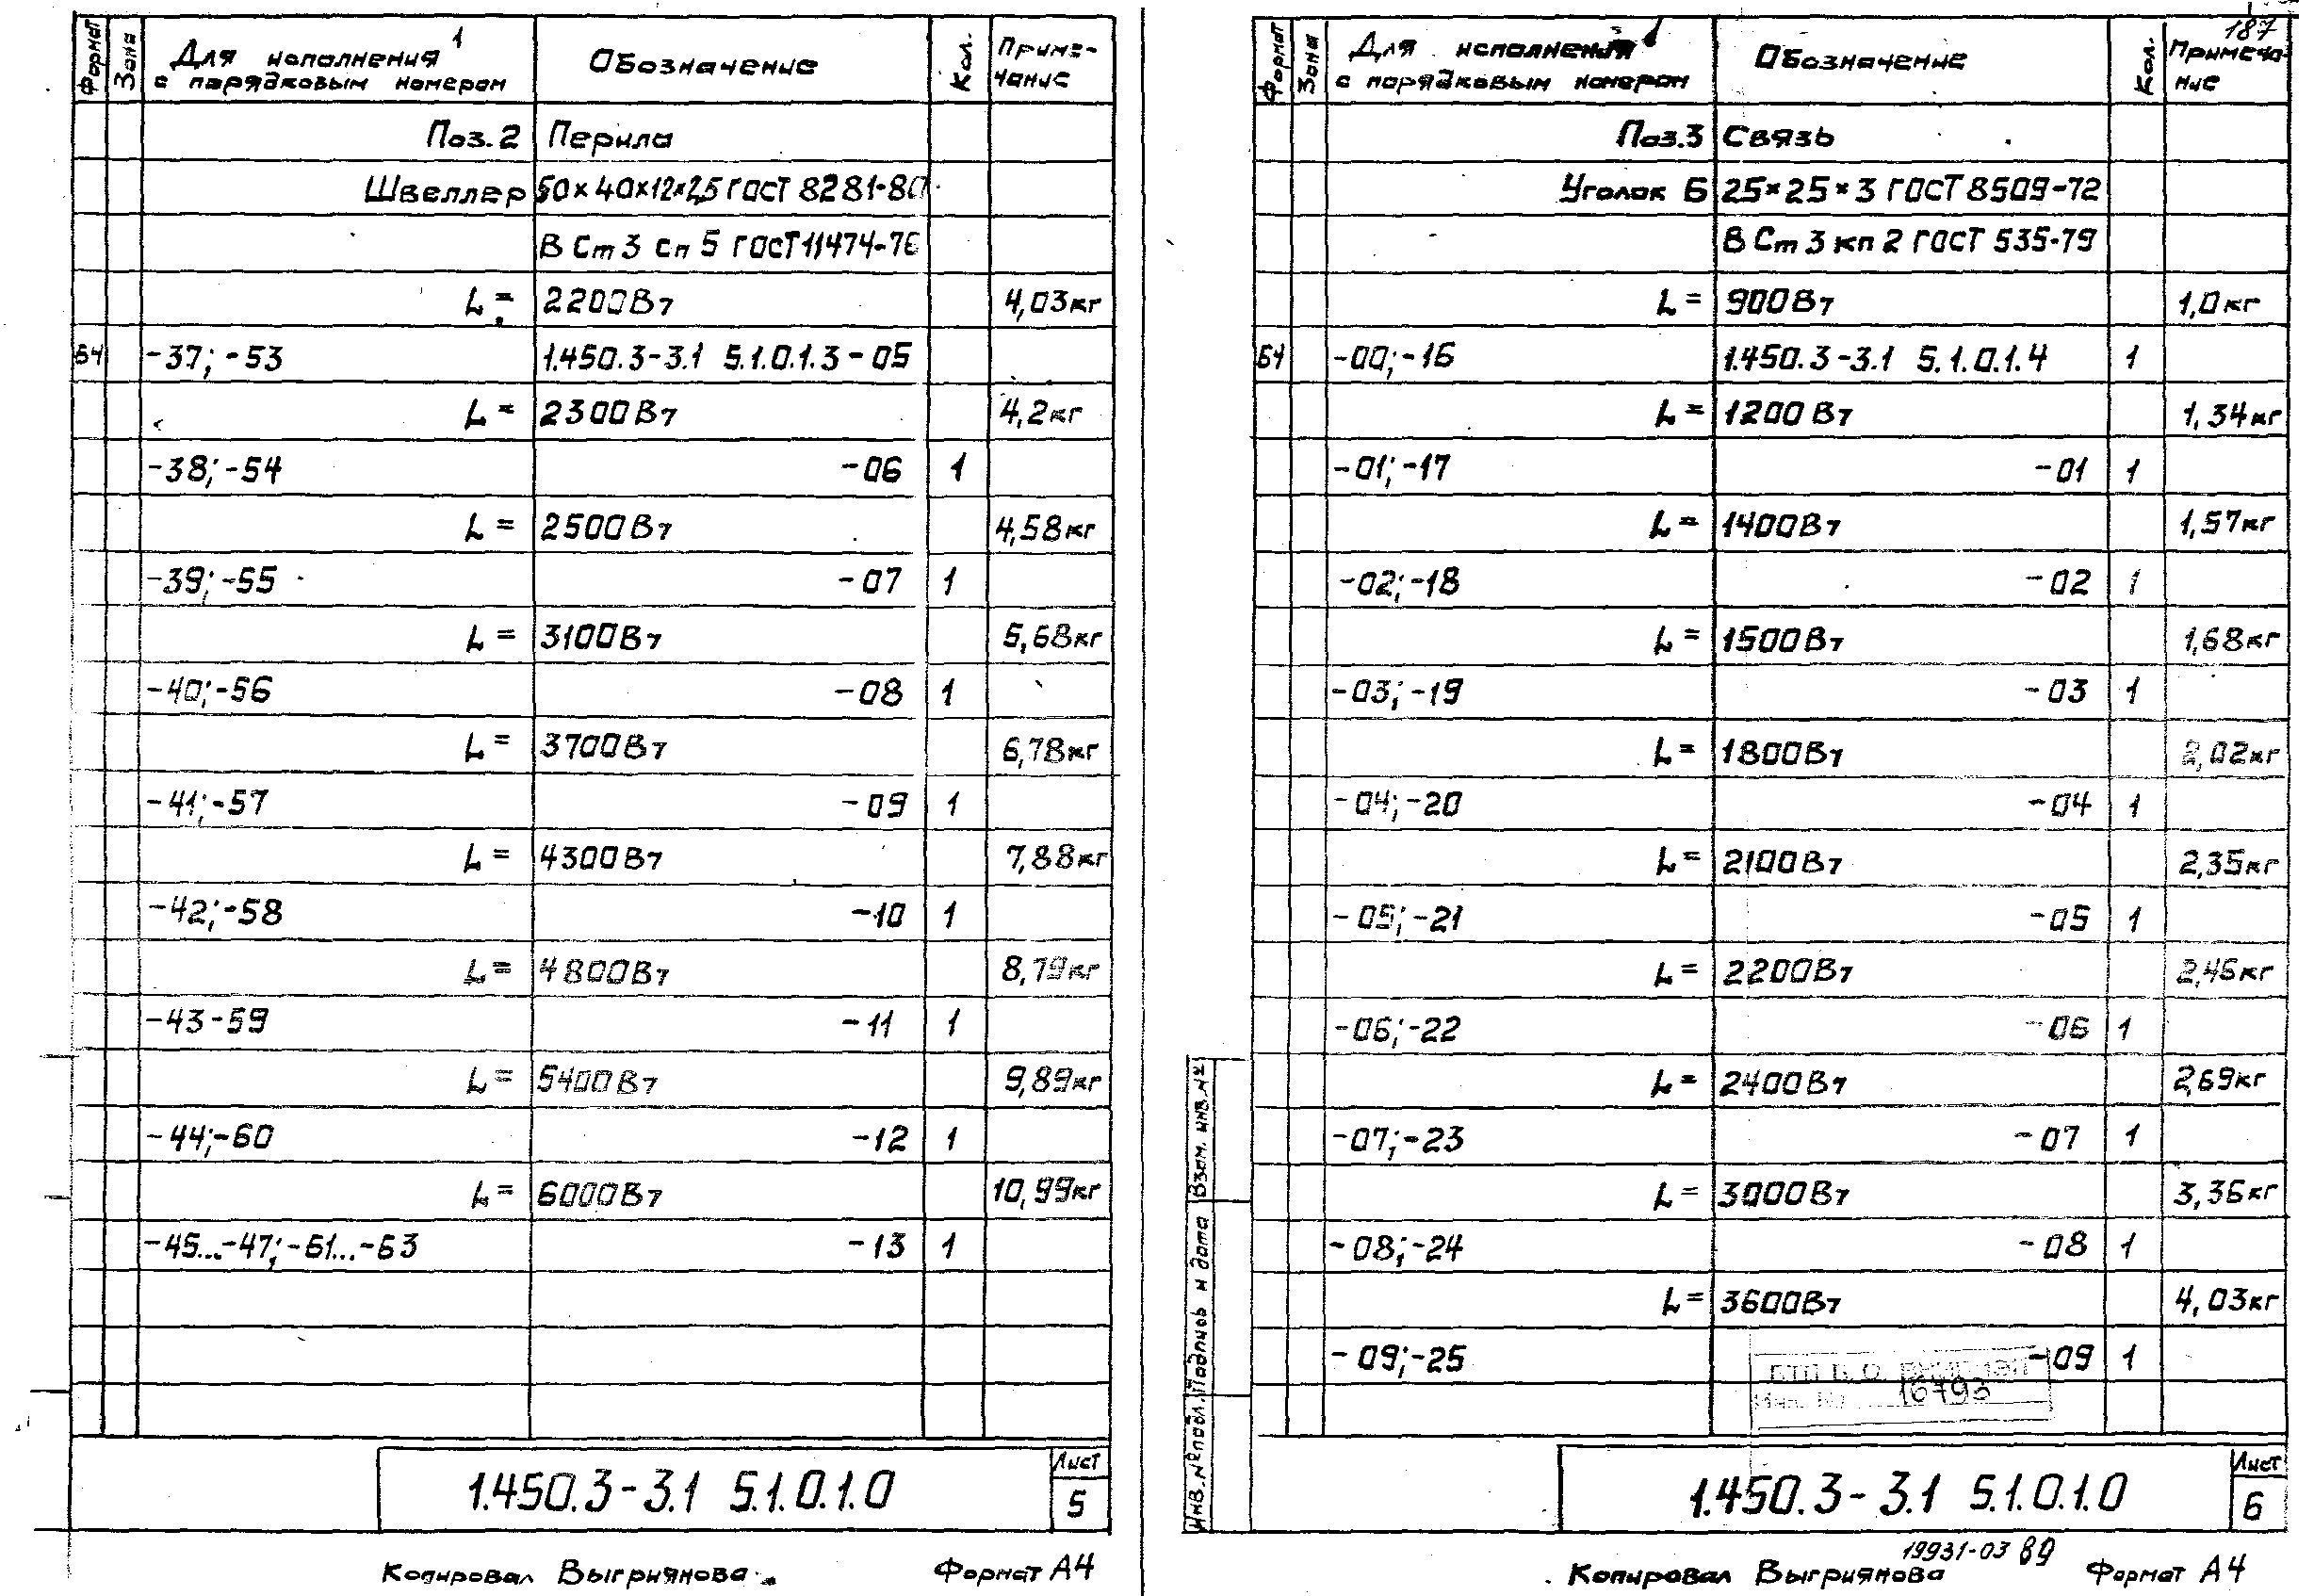 Формат Зона Для исполнения 1 с порядковым номером Обозначение Кол. Примечание
Поз. 2 Перила
Швеллер 50×40×12×2,5 ГОСТ 8281-80
В Ст 3 сп 5 ГОСТ 11474-76
L = 2200Вт 4,03кг
Б4 -37; -53 1.450.3-3.1 5.1.0.1.3-05
L = 2300Вт 4,2кг
-38; -54 -06 1
L = 2500Вт 4,58кг
-39; -55 -07 1
L = 3100Вт 5,68кг
-40; -56 -08 1
L = 3700Вт 6,78кг
-41; -57 -09 1
L = 4300Вт 7,88кг
-42; -58 -10 1
L = 4800Вт 8,79кг
-43-59 -11 1
L = 5400Вт 9,89кг
-44;-60 -12 1
L = 6000Вт 10,99кг
-45...-47;-61...-63 -13 1
1.450.3-3.1 5.1.0.1.0 Лист 5
Копировал Выгриянова Формат А4
187
Формат Зона Для исполнения с порядковым номером Обозначение Кол. Примечание
Поз.3 Связь
Уголок Б 25×25×3 ГОСТ 8509-72
В Ст 3 кп 2 ГОСТ 535-79
L = 900Вт 1,0кг
Б4 -00;-16 1.450.3-3.1 5.1.0.1.4 1
L = 1200Вт 1,34кг
-01;-17 -01 1
L = 1400Вт 1,57кг
-02;-18 -02 1
L = 1500Вт 1,68кг
-03;-19 -03 1
L = 1800Вт 2,02кг
-04;-20 -04 1
L = 2100Вт 2,35кг
-05;-21 -05 1
L = 2200Вт 2,46кг
-06;-22 -06 1
L = 2400Вт 2,69кг
-07;-23 -07 1
L = 3000Вт 3,36кг
-08;-24 -08 1
L = 3600Вт 4,03кг
-09;-25 -09 1
Инв. № 16793
Инв.№ подл. Подпись и дата Взам. инв.№
1.450.3-3.1 5.1.0.1.0 Лист 6
19931-03 89
Копировал Выгриянова Формат А4